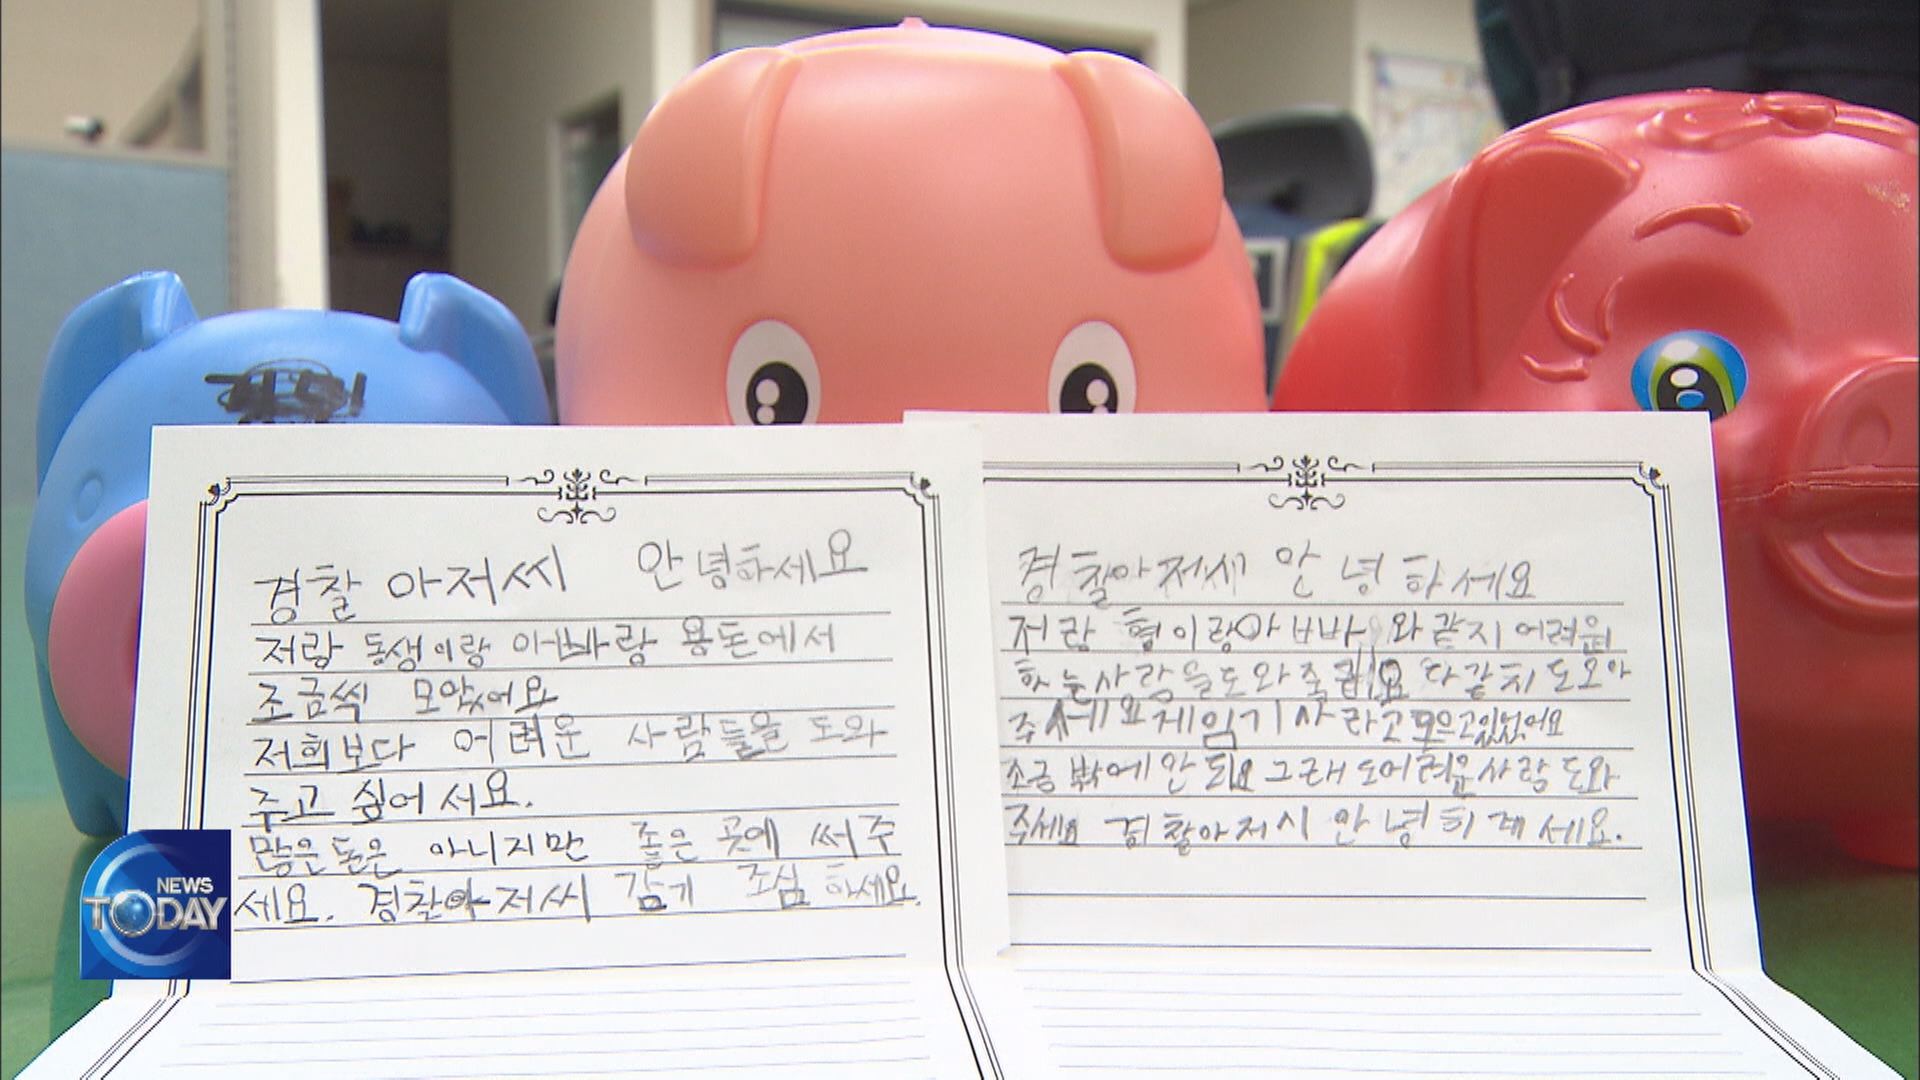 경찰 아저씨 안녕하세요
저랑 동생이랑 아빠랑 용돈에서
조금씩 모았어요
저희보다 어려운 사람들을 도와
주고 싶어서요.
많은 돈은 아니지만 좋은 곳에 써주
세요. 경찰아저씨 감기 조심하세요.
경찰아저씨 안녕하세요
저랑 형이랑아빠와같지어려원
하는사람들도와죽려요 다같치도오아
주세요게임기사라고모은고있었어요
소금밖에안되요그래도어려운사람도와
주세요 경찰아저시 안녕히게세요.
NEWS
TODAY